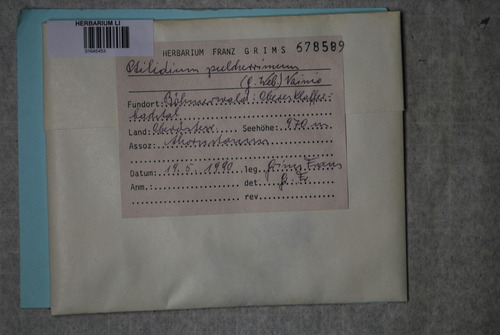 HERBARIUM LI
HERBARIUM FRANZ GRIMS 678589
Ptilidium pulcherrimum
(G. Web.) Vainio
Fundort: Böhmerwald: Oberes Klaffer-
bachtal
Land: Oberösterr. Seehöhe: 970 m
Assoz:
Datum: 19. 5. 1990 leg. Grims Franz
Anm.: det. G. Fr.
rev.